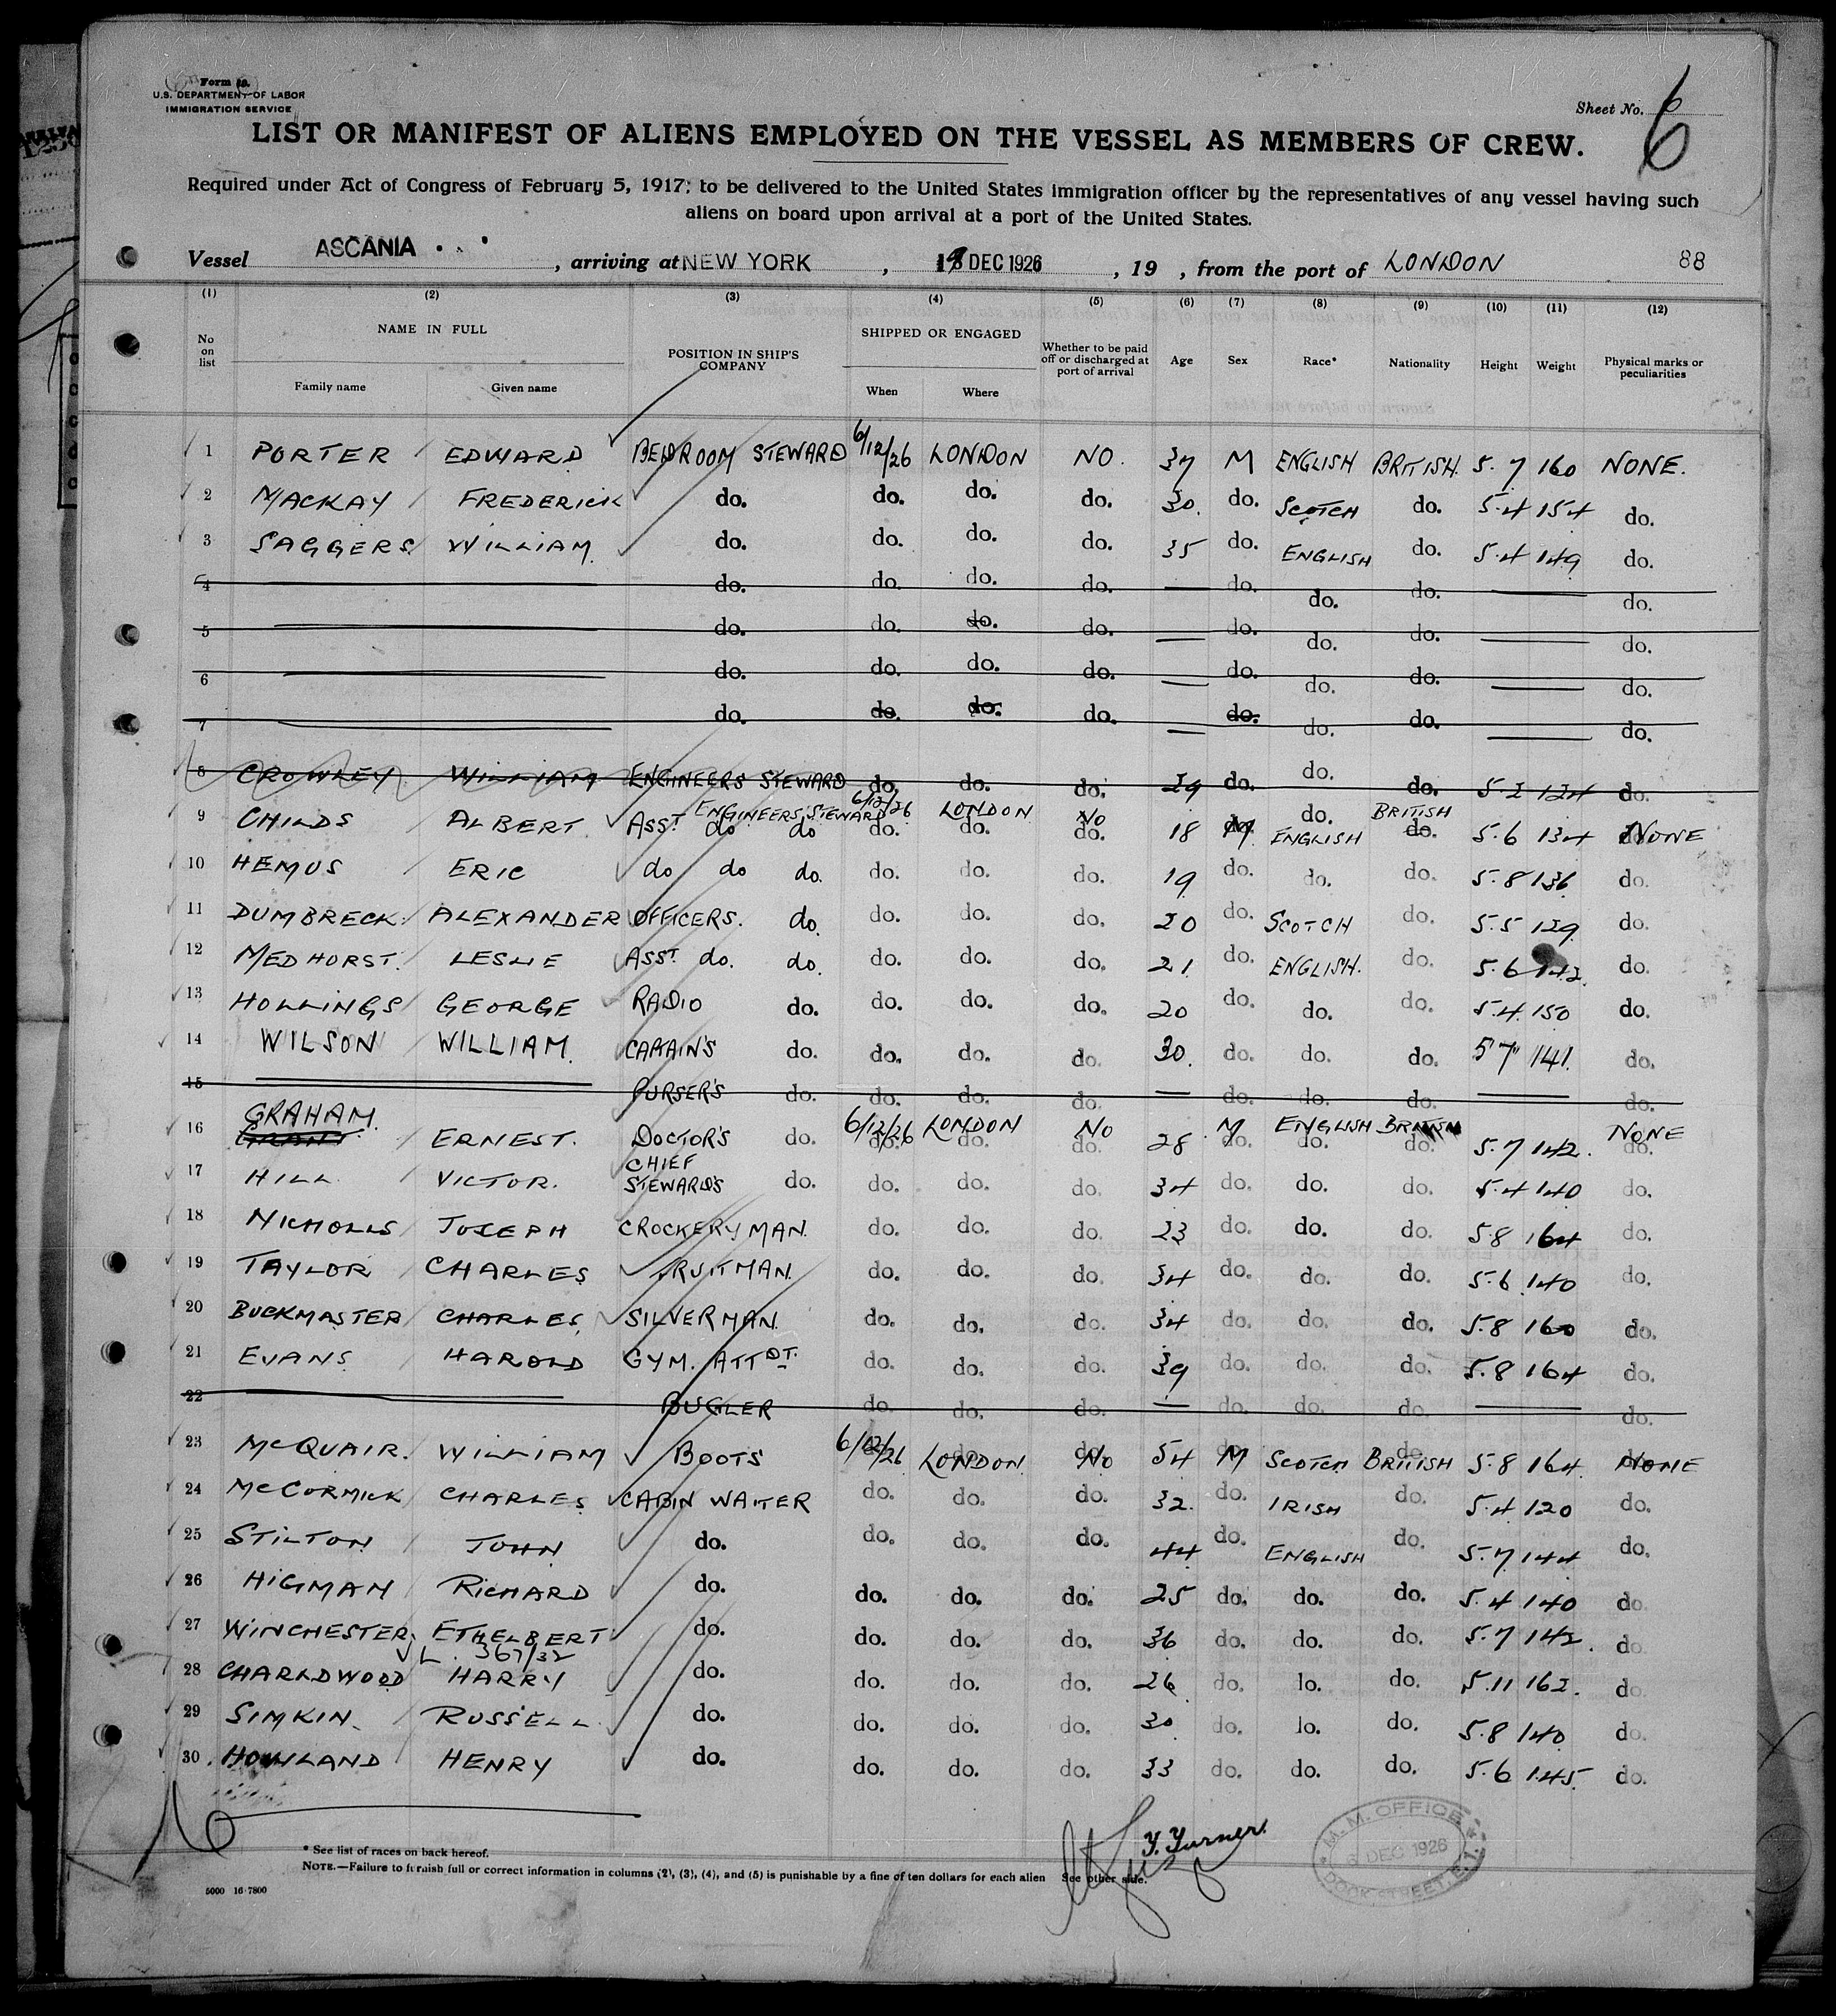 Form
U.S. DEPARTMENT OF LABOR
IMMIGRATION SERVICE
Sheet No. 6
LIST OR MANIFEST OF ALIENS EMPLOYED ON THE VESSEL AS MEMBERS OF CREW.
Required under Act of Congress of February 5, 1917; to be delivered to the United States immigration officer by the representatives of any vessel having such
aliens on board upon arrival at a port of the United States.
Vessel ASCANIA , arriving at NEW YORK , DEC 1926 , 19 , from the port of LONDON 88
(1) (2) (3) (4) (5) (6) (7) (8) (9) (10) (11) (12)
No on list NAME IN FULL Family name Given name POSITION IN SHIP'S COMPANY SHIPPED OR ENGAGED When Where Whether to be paid off or discharged at port of arrival Age Sex Race* Nationality Height Weight Physical marks or peculiarities
1 PORTER EDWARD BEDROOM STEWARD 6/12/26 LONDON NO. 37 M ENGLISH BRITISH. 5.7 160 NONE.
2 MACKAY FREDERICK do. do. do. do. 30. do. SCOTCH do. 5.4 154 do.
3 SAGGERS WILLIAM. do. do. do. do. 35 do. ENGLISH do. 5.4 149 do.
4 do. do. do. do. do. do. do. do.
5 do. do. do. do. do. do. do. do.
6 do. do. do. do. do. do. do. do.
7 do. do. do. do. do. do. do. do.
8 CROWLEY WILLIAM ENGINEERS STEWARD do. do. do. 29 do. do. do. 5.2 124 do.
ENGINEERS STEWARD 6/12/26 LONDON NO BRITISH
9 CHILDS ALBERT ASST do do do. do. do. 18 M do. ENGLISH do. 5.6 134 NONE
10 HEMUS ERIC do do do. do. do. do. 19 do. do. do. 5.8 136 do.
11 DUMBRECK ALEXANDER OFFICERS. do. do. do. do. 20 do. SCOTCH do. 5.5 129 do.
12 MEDHORST. LESLIE ASST. do. do. do. do. do. 21 do. ENGLISH. do. 5.6 142 do.
13 HOLLINGS GEORGE RADIO do. do. do. do. 20 do. do. do. 5.4. 150 do.
14 WILSON WILLIAM. CAPTAIN'S do. do. do. do. 30. do. do. do. 5 7" 141. do.
15 PURSER'S do. do. do. do. do. do. do. do.
GRAHAM. 6/12/26 LONDON NO M ENGLISH BRITISH NONE
16 GRANT ERNEST. DOCTOR'S do. do. do. do. 28 do. do. do. 5.7 142. do.
17 HILL VICTOR. CHIEF STEWARD'S do. do. do. do. 34 do. do. do. 5.4 140 do.
18 NICHOLLS JOSEPH CROCKERYMAN. do. do. do. 23 do. do. do. 5.8 164 do.
19 TAYLOR CHARLES FRUITMAN. do. do. do. 34 do. do. do. 5.6 140 do.
20 BUCKMASTER CHARLES SILVERMAN. do. do. do. 34 do. do. do. 5.8 160 do.
21 EVANS HAROLD GYM. ATTDT. do. do. do. 39 do. do. do. 5.8 164 do.
22 BUGLER do. do. do. do. do. do. do.
23 MCQUAIR. WILLIAM BOOTS 6/12/26 LONDON. NO 54 M SCOTCH BRITISH 5.8 164 NONE
24 MCCORMICK CHARLES CABIN WAITER do. do. do. 32. do. IRISH do. 5.4 120 do.
25 STILTON JOHN do. do. do. do. 44 do. ENGLISH do. 5.7 144 do.
26 HIGMAN RICHARD do. do. do. do. 25 do. do. do. 5.4 140 do.
27 WINCHESTER ETHELBERT do. do. do. do. 36 do. do. do. 5.7 142. do.
L. 367/32
28 CHARLDWOOD HARRY do. do. do. do. 26 do. lo. do. 5.11 162. do.
29 SIMKIN. RUSSELL. do. do. do. do. 30 do. lo. do. 5.8 140 do.
30. HOWLAND HENRY do. do. do. do. 33 do. do. do. 5.6 145. do.
* See list of races on back hereof.
NOTE.—Failure to furnish full or correct information in columns (2), (3), (4), and (5) is punishable by a fine of ten dollars for each alien See other side.
Y. Turner.
M. M. OFFICE
6 DEC 1926
DOCK STREET, E.1.
5000 16-7800